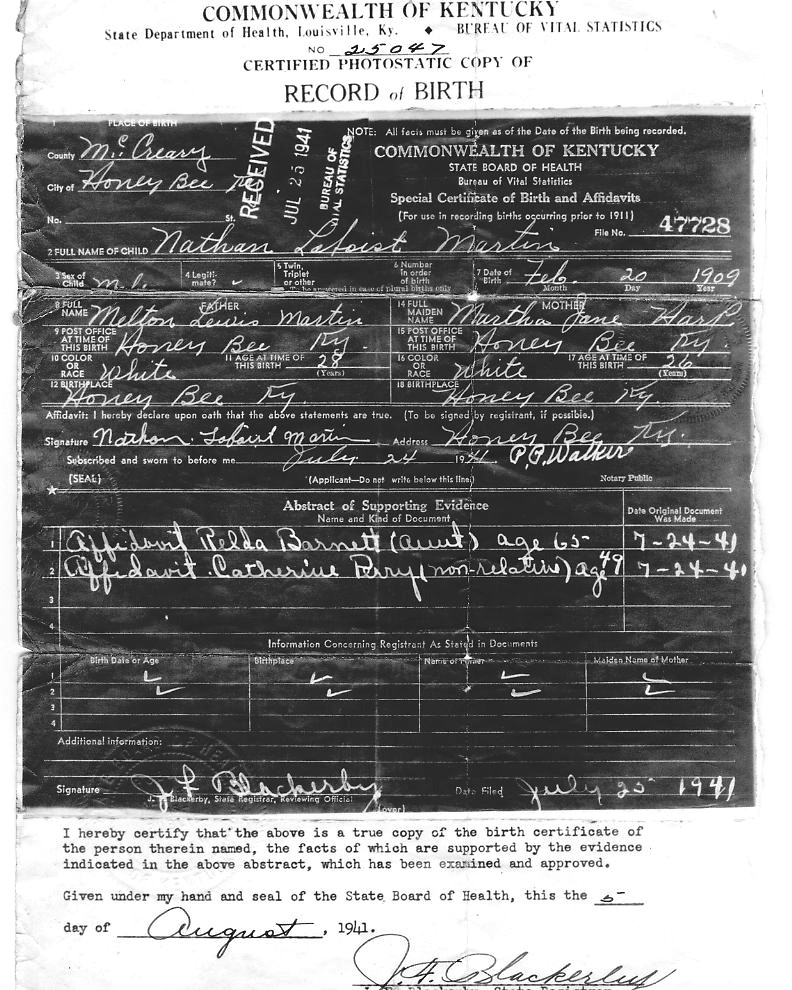 COMMONWEALTH OF KENTUCKY
State Department of Health, Louisville, Ky. ♦ BUREAU OF VITAL STATISTICS
NO 25047
CERTIFIED PHOTOSTATIC COPY OF
RECORD of BIRTH
1 PLACE OF BIRTH
NOTE: All facts must be given as of the Date of the Birth being recorded.
County McCreary
City of Honey Bee Ky
No. St.
RECEIVED
JUL 25 1941
BUREAU OF
VITAL STATISTICS
COMMONWEALTH OF KENTUCKY
STATE BOARD OF HEALTH
Bureau of Vital Statistics
Special Certificate of Birth and Affidavits
(For use in recording births occurring prior to 1911)
File No. 47728
2 FULL NAME OF CHILD Nathan Lafoist Martin
3 Sex of Child m. 4 Legitimate? ✓ 5 Twin, Triplet or other 6 Number in order of birth 7 Date of Birth Feb. 20 1909
(To be answered in case of plural births only) Month Day Year
FATHER
8 FULL NAME Melton Lewis Martin
MOTHER
14 FULL MAIDEN NAME Martha Jane Harp
9 POST OFFICE AT TIME OF THIS BIRTH Honey Bee Ky.
15 POST OFFICE AT TIME OF THIS BIRTH Honey Bee Ky.
10 COLOR OR RACE White 11 AGE AT TIME OF THIS BIRTH 28 (Years)
16 COLOR OR RACE White 17 AGE AT TIME OF THIS BIRTH 26 (Years)
12 BIRTHPLACE Honey Bee Ky.
18 BIRTHPLACE Honey Bee Ky.
Affidavit: I hereby declare upon oath that the above statements are true. (To be signed by registrant, if possible.)
Signature Nathan Lafoist Martin Address Honey Bee Ky.
Subscribed and sworn to before me July 24 1941 P.P. Walker
(SEAL) (Applicant—Do not write below this line) Notary Public
Abstract of Supporting Evidence
Name and Kind of Document
Date Original Document Was Made
1 Affidavit Relda Barnett (aunt) age 65 7-24-41
2 Affidavit Catherine Perry (non-relative) age 49 7-24-41
3
4
Information Concerning Registrant As Stated in Documents
Birth Date or Age Birthplace Name of Father Maiden Name of Mother
1 ✓ ✓ ✓ ✓
2 ✓ ✓ ✓ ✓
3
4
Additional information:
Signature J F Blackerby Date Filed July 25 1941
J. F. Blackerby, State Registrar, Reviewing Official
(over)
I hereby certify that the above is a true copy of the birth certificate of
the person therein named, the facts of which are supported by the evidence
indicated in the above abstract, which has been examined and approved.
Given under my hand and seal of the State Board of Health, this the 5
day of August, 1941.
J. F. Blackerby
J. F. Blackerby, State Registrar